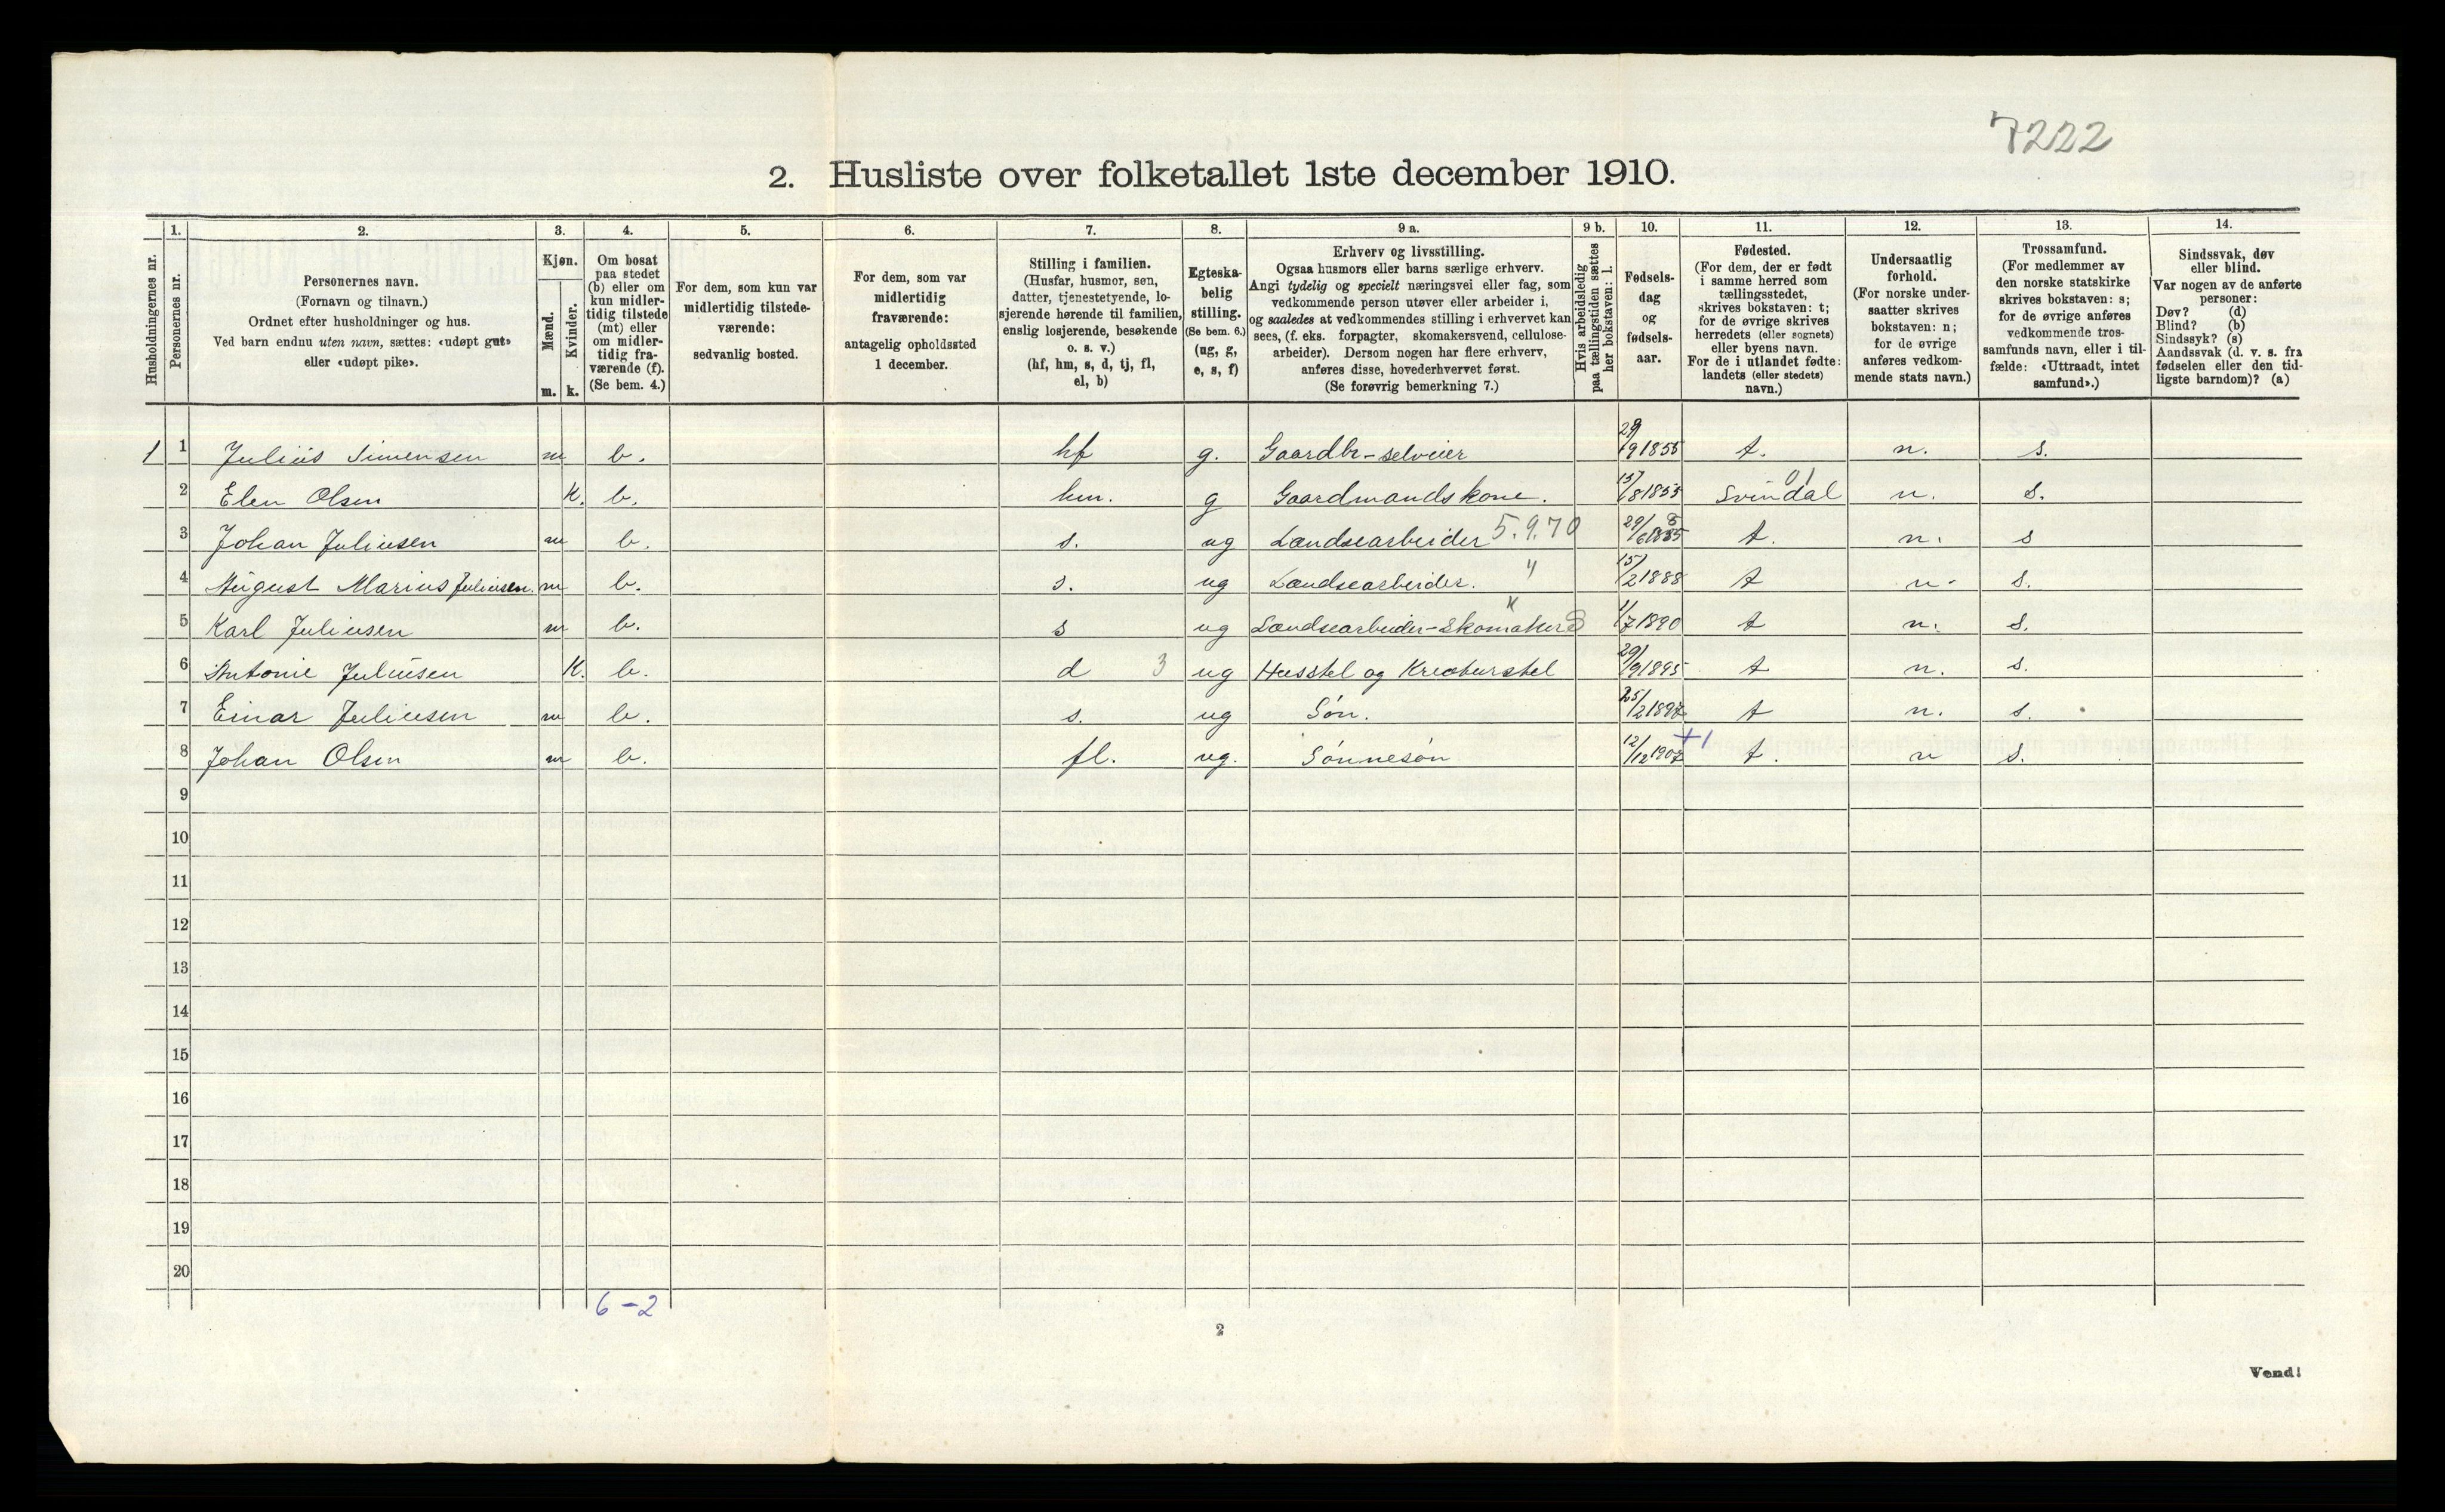 7222
2. Husliste over folketallet 1ste december 1910.
Husholdningernes nr.
1.
Personernes nr.
2.
Personernes navn.
(Fornavn og tilnavn.)
Ordnet efter husholdninger og hus.
Ved barn endnu uten navn, sættes: «udøpt gut»
eller «udøpt pike».
3.
Kjøn.
Mænd.
m.
Kvinder.
k.
4.
Om bosat
paa stedet
(b) eller om
kun midler-
tidig tilstede
(mt) eller
om midler-
tidig fra-
værende (f).
(Se bem. 4.)
5.
For dem, som kun var
midlertidig tilstede-
værende:
sedvanlig bosted.
6.
For dem, som var
midlertidig
fraværende:
antagelig opholdssted
1 december.
7.
Stilling i familien.
(Husfar, husmor, søn,
datter, tjenestetyende, lo-
sjerende hørende til familien,
enslig losjerende, besøkende
o. s. v.)
(hf, hm, s, d, tj, fl,
el, b)
8.
Egteska-
belig
stilling.
(Se bem. 6.)
(ug, g,
e, s, f)
9 a.
Erhverv og livsstilling.
Ogsaa husmors eller barns særlige erhverv.
Angi tydelig og specielt næringsvei eller fag, som
vedkommende person utøver eller arbeider i,
og saaledes at vedkommendes stilling i erhvervet kan
sees, (f. eks. forpagter, skomakersvend, cellulose-
arbeider). Dersom nogen har flere erhverv,
anføres disse, hovederhvervet først.
(Se forøvrig bemerkning 7.)
9 b.
Hvis arbeidsledig
paa tællingstiden sættes
her bokstaven: l.
10.
Fødsels-
dag
og
fødsels-
aar.
11.
Fødested.
(For dem, der er født
i samme herred som
tællingsstedet,
skrives bokstaven: t;
for de øvrige skrives
herredets (eller sognets)
eller byens navn.
For de i utlandet fødte:
landets (eller stedets)
navn.)
12.
Undersaatlig
forhold.
(For norske under-
saatter skrives
bokstaven: n;
for de øvrige
anføres vedkom-
mende stats navn.)
13.
Trossamfund.
(For medlemmer av
den norske statskirke
skrives bokstaven: s;
for de øvrige anføres
vedkommende tros-
samfunds navn, eller i til-
fælde: «Uttraadt, intet
samfund».)
14.
Sindssvak, døv
eller blind.
Var nogen av de anførte
personer:
Døv? (d)
Blind? (b)
Sindssyk? (s)
Aandssvak (d. v. s. fra
fødselen eller den tid-
ligste barndom)? (a)
1 1 Julius Simensen m b. hf g. Gaardbr-selveier 29/9 1855 t. n. s.
2 Elen Olsen K. b. hm. g Gaardmandskone. 15/8 1853 Svindal 01 n. s.
3 Johan Juliusen m b. s. ug Landsearbeider 5.9.70 29/6 1885 t. n. s
4 August Marius Juliusen. m b. s. ug Landsearbeider. " 15/2 1888 t n. s.
5 Karl Juliusen m b. s ug Landsearbeider-Skomaker 1/7 1890 t n. s.
6 Antonie Juliusen K. b. d 3 ug Husstel og Kreaturstel 29/9 1895 t n. s.
7 Einar Juliusen m b. s. ug Søn. 25/2 1897 t n. s.
8 Johan Olsen m b. fl. ug. Sønnesøn 12/12 1907 +1 t. n s.
9
10
11
12
13
14
15
16
17
18
19
20
6-2
2
Vend!